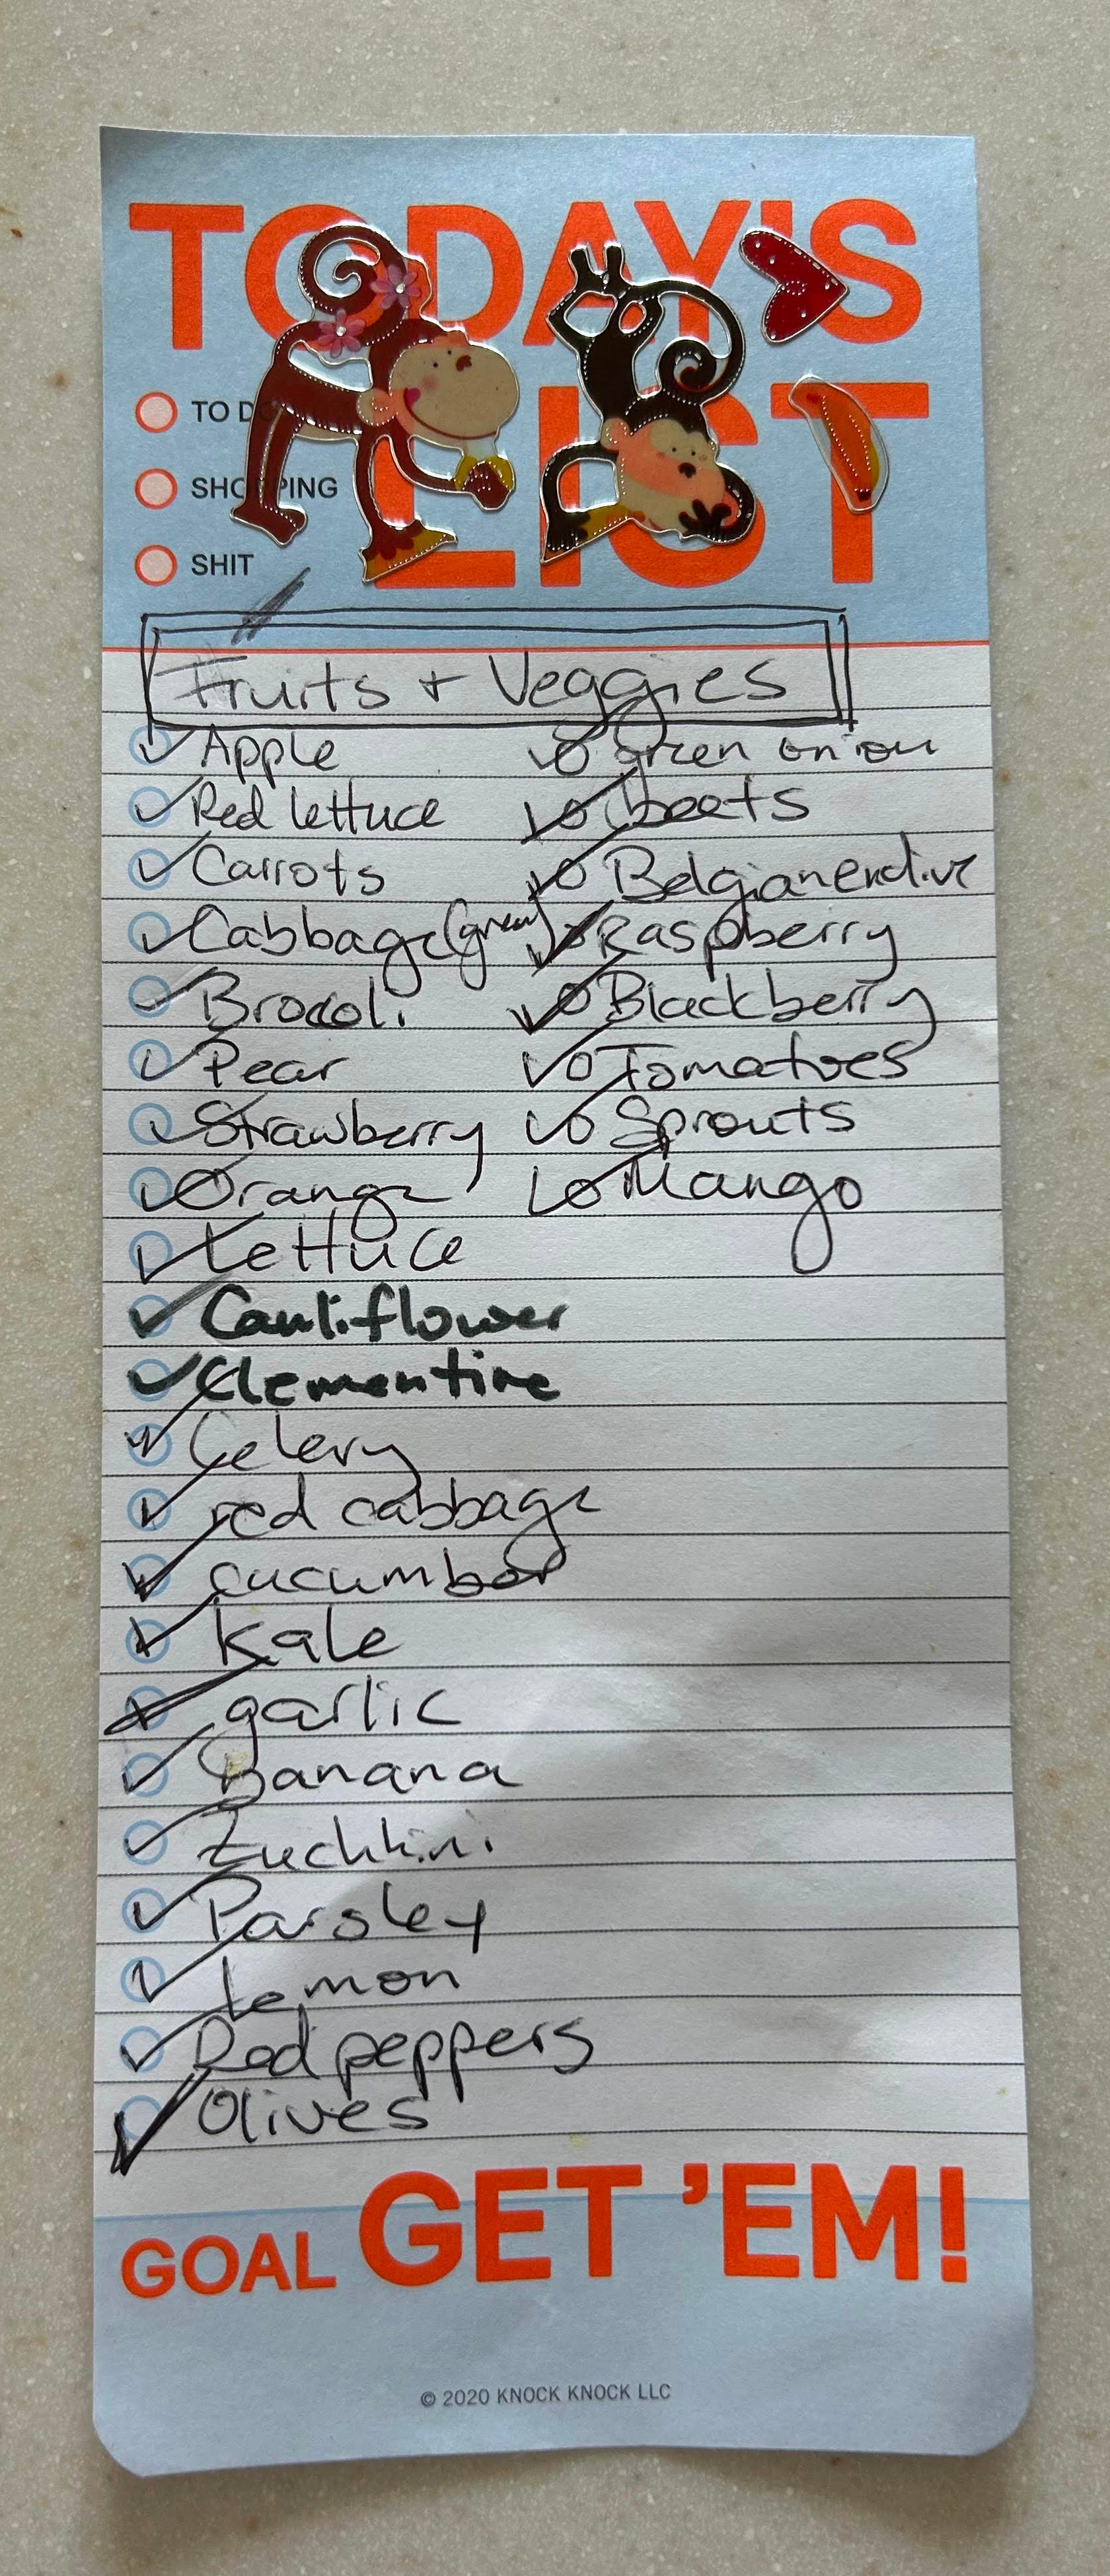 TODAY'S
LIST
TO DO
SHOPPING
SHIT
Fruits + Veggies
Apple
Red lettuce
Carrots
Cabbage (green)
Brocoli
Pear
Strawberry
Orange
Lettuce
Cauliflower
Clementine
Celery
red cabbage
cucumber
Kale
garlic
Banana
Zuchhini
Parsley
Lemon
Red peppers
Olives
green onion
beets
Belgian endive
Raspberry
Blackberry
Tomatoes
Sprouts
Mango
GOAL GET 'EM!
© 2020 KNOCK KNOCK LLC